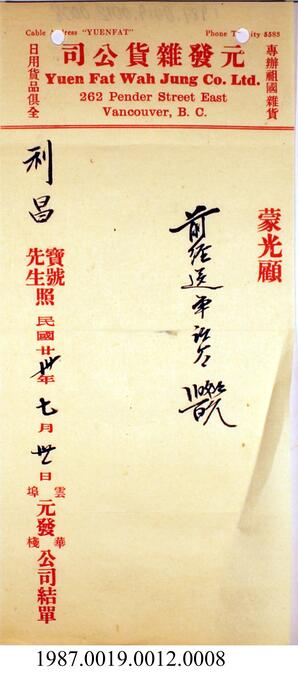 Cable Address "YUENFAT"
Phone Trinity 5583
專辦祖國雜貨
司公貨雜發元
日用貨品俱全
Yuen Fat Wah Jung Co. Ltd.
262 Pender Street East
Vancouver, B. C.
蒙光顧
前經送單計欠
利昌
寶號
先生照
民國廿卅年七月卅一日
雲埠
元發
華棧
公司結單
1987.0019.0012.0008